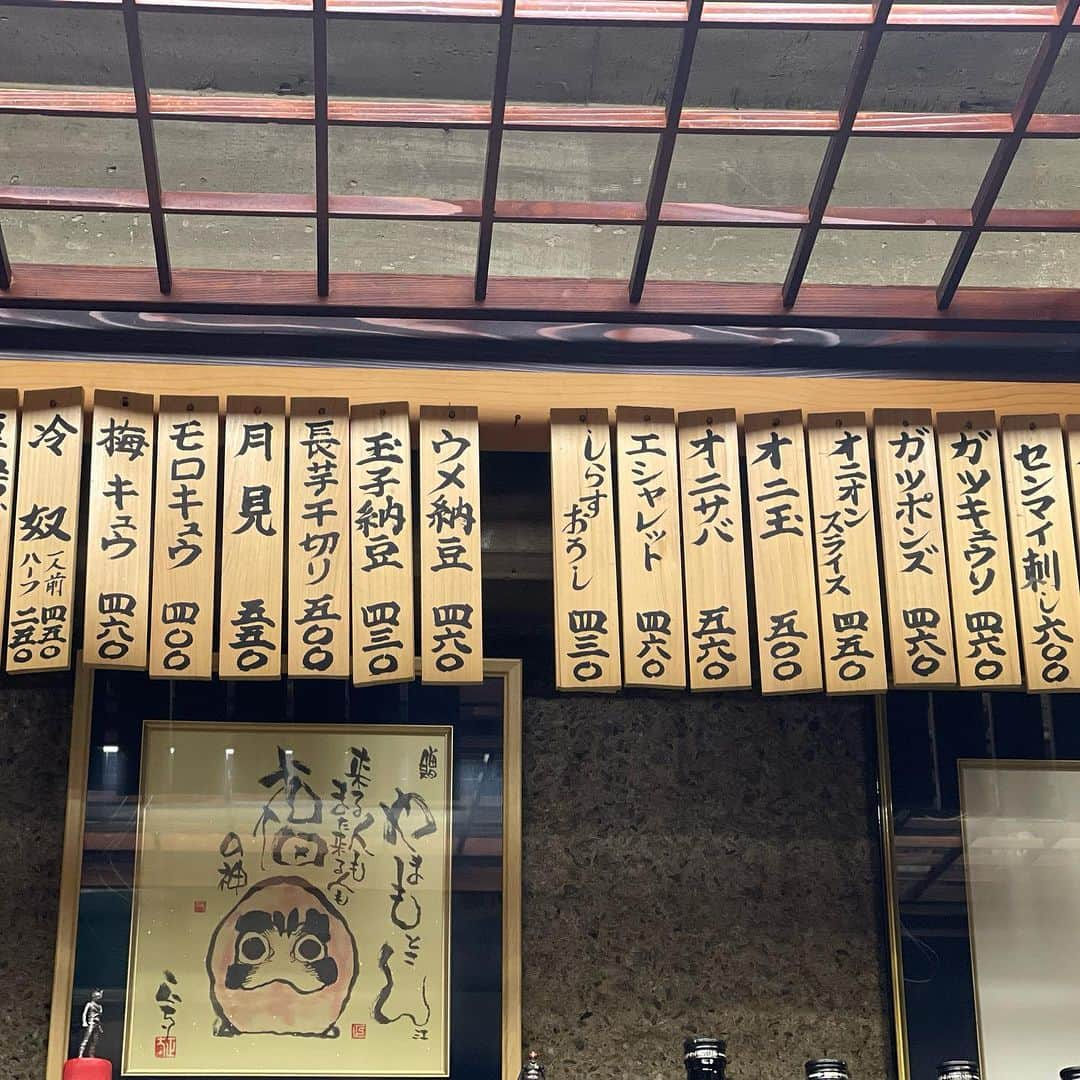 冷奴 一人前 四五〇
ハーフ 二五〇
梅キュウ 四六〇
モロキュウ 四〇〇
月見 五五〇
長芋千切り 五〇〇
玉子納豆 四三〇
ウメ納豆 四六〇
しらすおろし 四三〇
エシャレット 四六〇
オニサバ 五六〇
オニ玉 五〇〇
オニオンスライス 四五〇
ガツポンズ 四六〇
ガツキュウリ 四六〇
センマイ刺し 六〇〇
贈
やまもとさん江
来る人も
また来る人も
の神